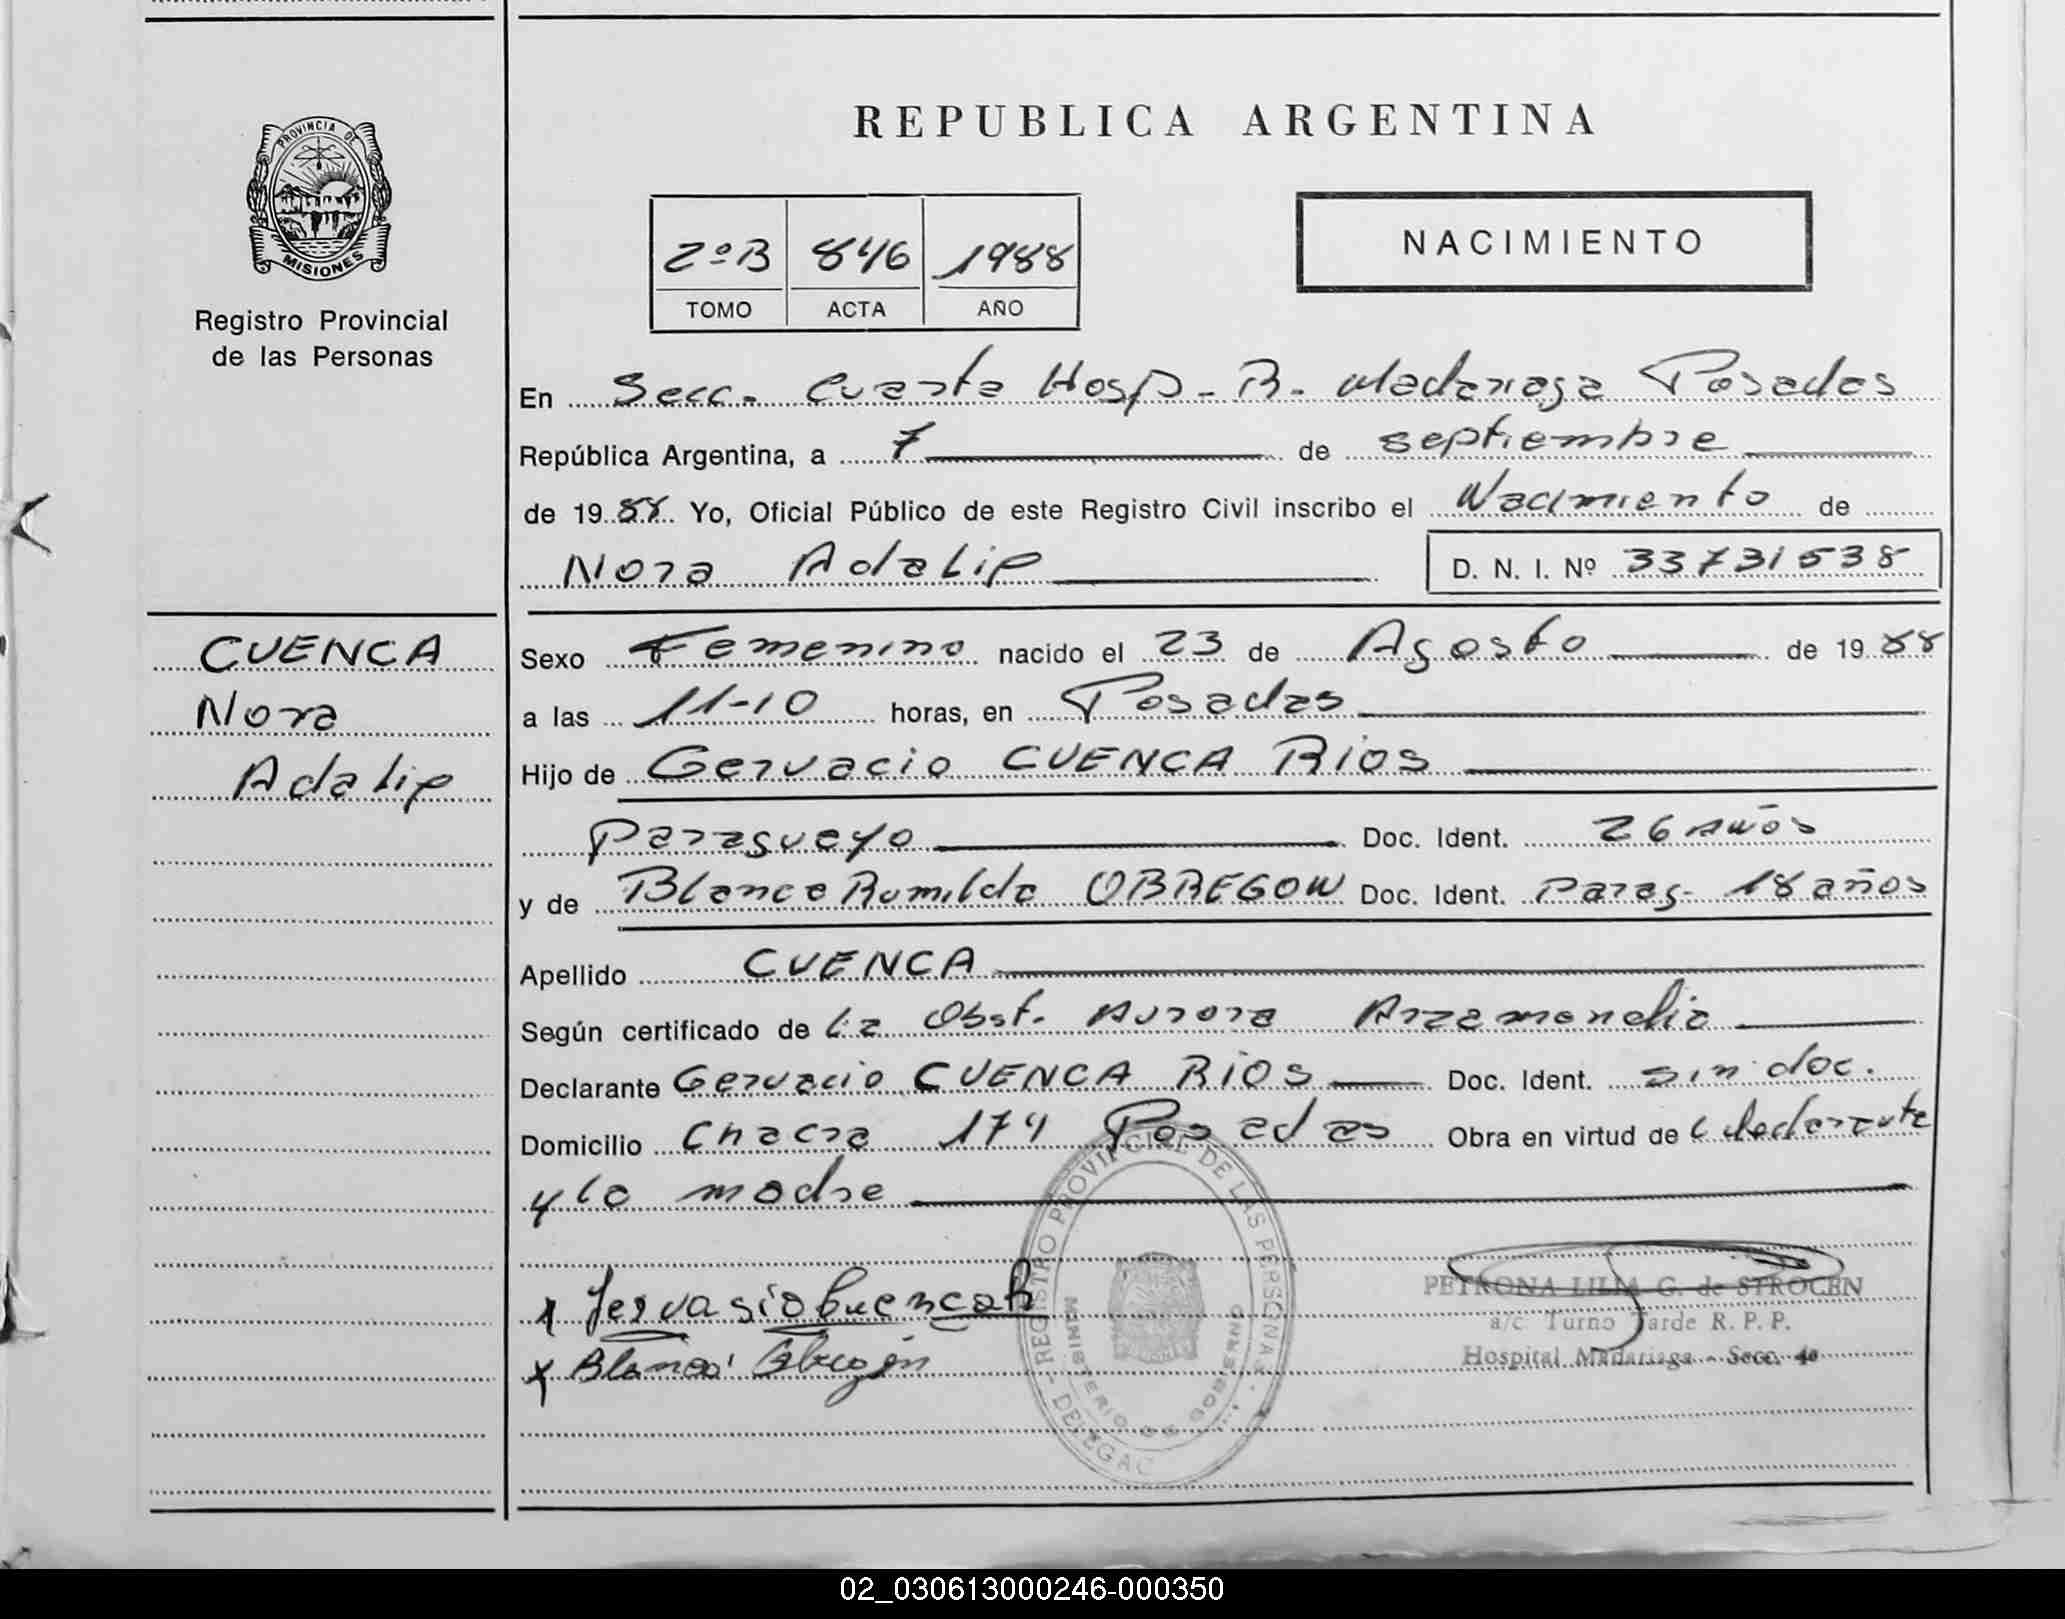 PROVINCIA DE
MISIONES
Registro Provincial
de las Personas
CUENCA
Nora
Adalip
REPUBLICA ARGENTINA
2º B 846 1988
TOMO ACTA AÑO
NACIMIENTO
En Secc. Cuarta Hosp. R. Madariaga Posadas
República Argentina, a 7 de septiembre
de 1988 Yo, Oficial Público de este Registro Civil inscribo el Nacimiento de
Nora Adalip D. N. I. Nº 33731538
Sexo Femenino nacido el 23 de Agosto de 1988
a las 11-10 horas, en Posadas
Hijo de Gervacio CUENCA Rios
Paraguayo Doc. Ident. 26 años
y de Blanca Romilda OBREGON Doc. Ident. Parag. 18 años
Apellido CUENCA
Según certificado de la Obst. Aurora Arzamendia
Declarante Gervacio CUENCA RIOS Doc. Ident. sin doc.
Domicilio Chacra 174 Posadas Obra en virtud de declarante
y la madre
Gervasio Cuenca R
Blanca Obregón
REGISTRO PROVINCIAL DE LAS PERSONAS
MINISTERIO DE GOBIERNO
DELEGAC
PETRONA LILIA G. de STROCEN
a/c Turno Tarde R. P. P.
Hospital Madariaga - Secc. 4a
02_030613000246-000350